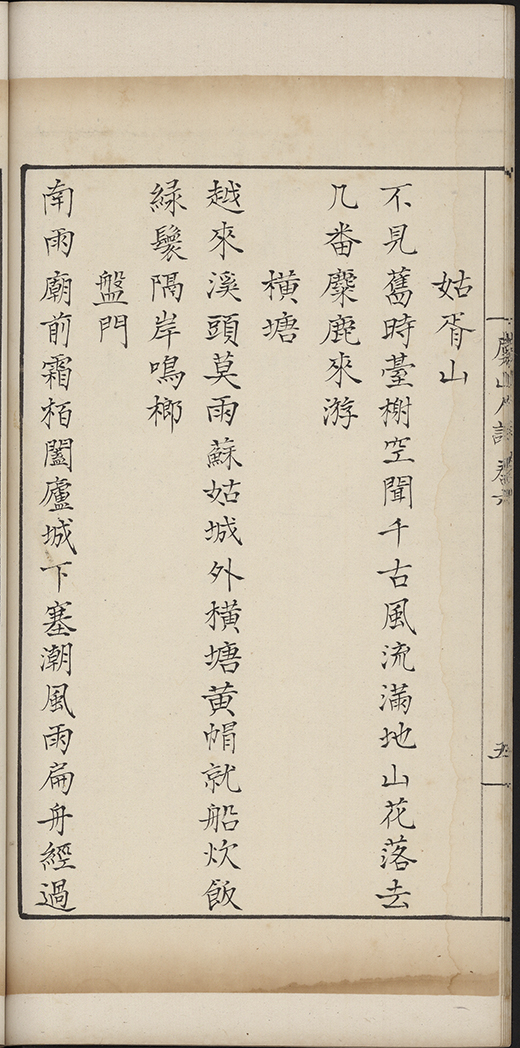 姑胥山
不見舊時臺榭空聞千古風流滿地山花落去
几畨麋鹿來游
橫塘
越來溪頭莫雨蘇姑城外橫塘黃帽就船炊飯
緑鬟隔岸鳴榔
盤門
南雨廟前霜栢闔廬城下塞潮風雨扁舟經過
五